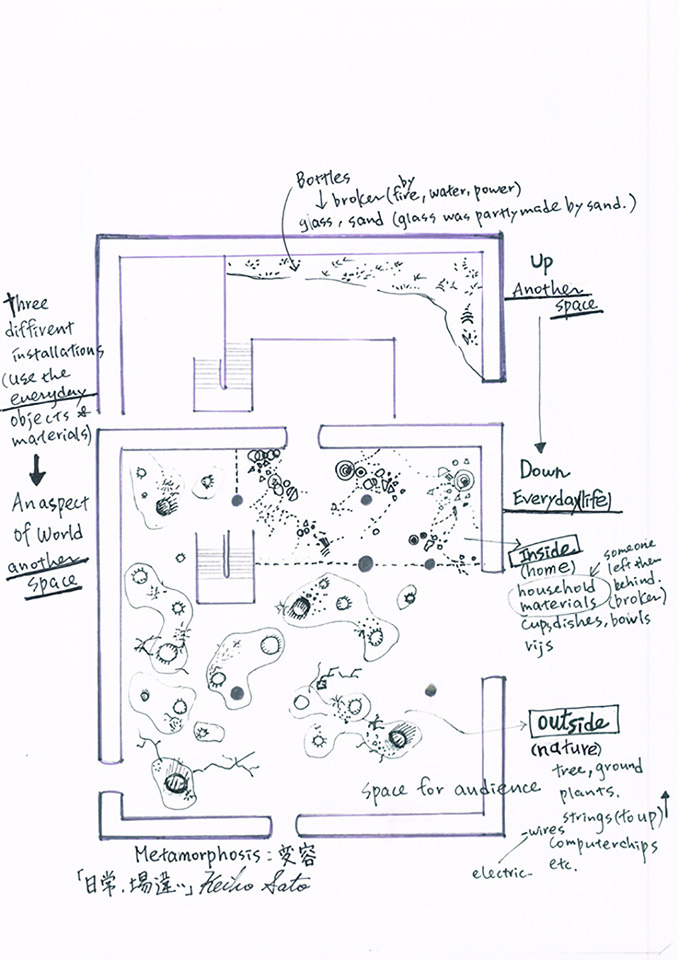 Bottles
↓ broker (by fire, water, power)
glass, sand (glass was partly made by sand.)
Up
Another
space
Three
diffirent
installations
(use the
everyday
objects &
materials)
An aspect
of World
another
space
Down
Everyday(life)
Inside
(home)
household
materials
someone
left them
behind.
(broker)
cups, dishes, bowls
rijs
outside
(nature)
tree, ground
plants.
strings (to up)
wires
computerchips
electric-
etc.
Space for audience
Metamorphosis : 変容
「日常、場違い」 Keiko Sato